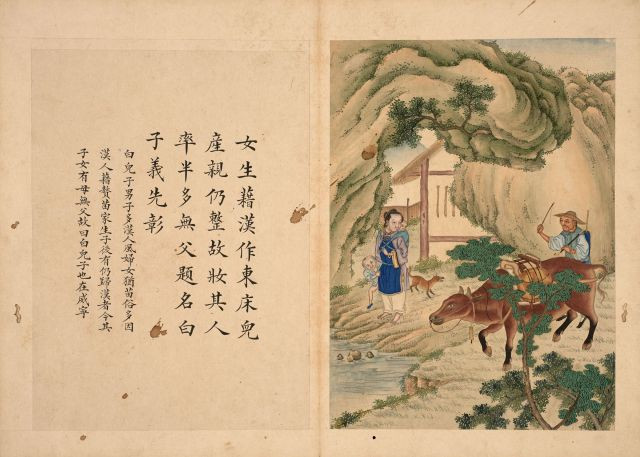 女生藉漢作東床兒
產親仍整故妝其人
率半多無父題名白
子義先彰
白兒子男子多漢人風婦女猶苗俗多因
漢人藉贅苗家生子後有仍歸漢者令其
子女有母無父故曰白兒子也在威寧